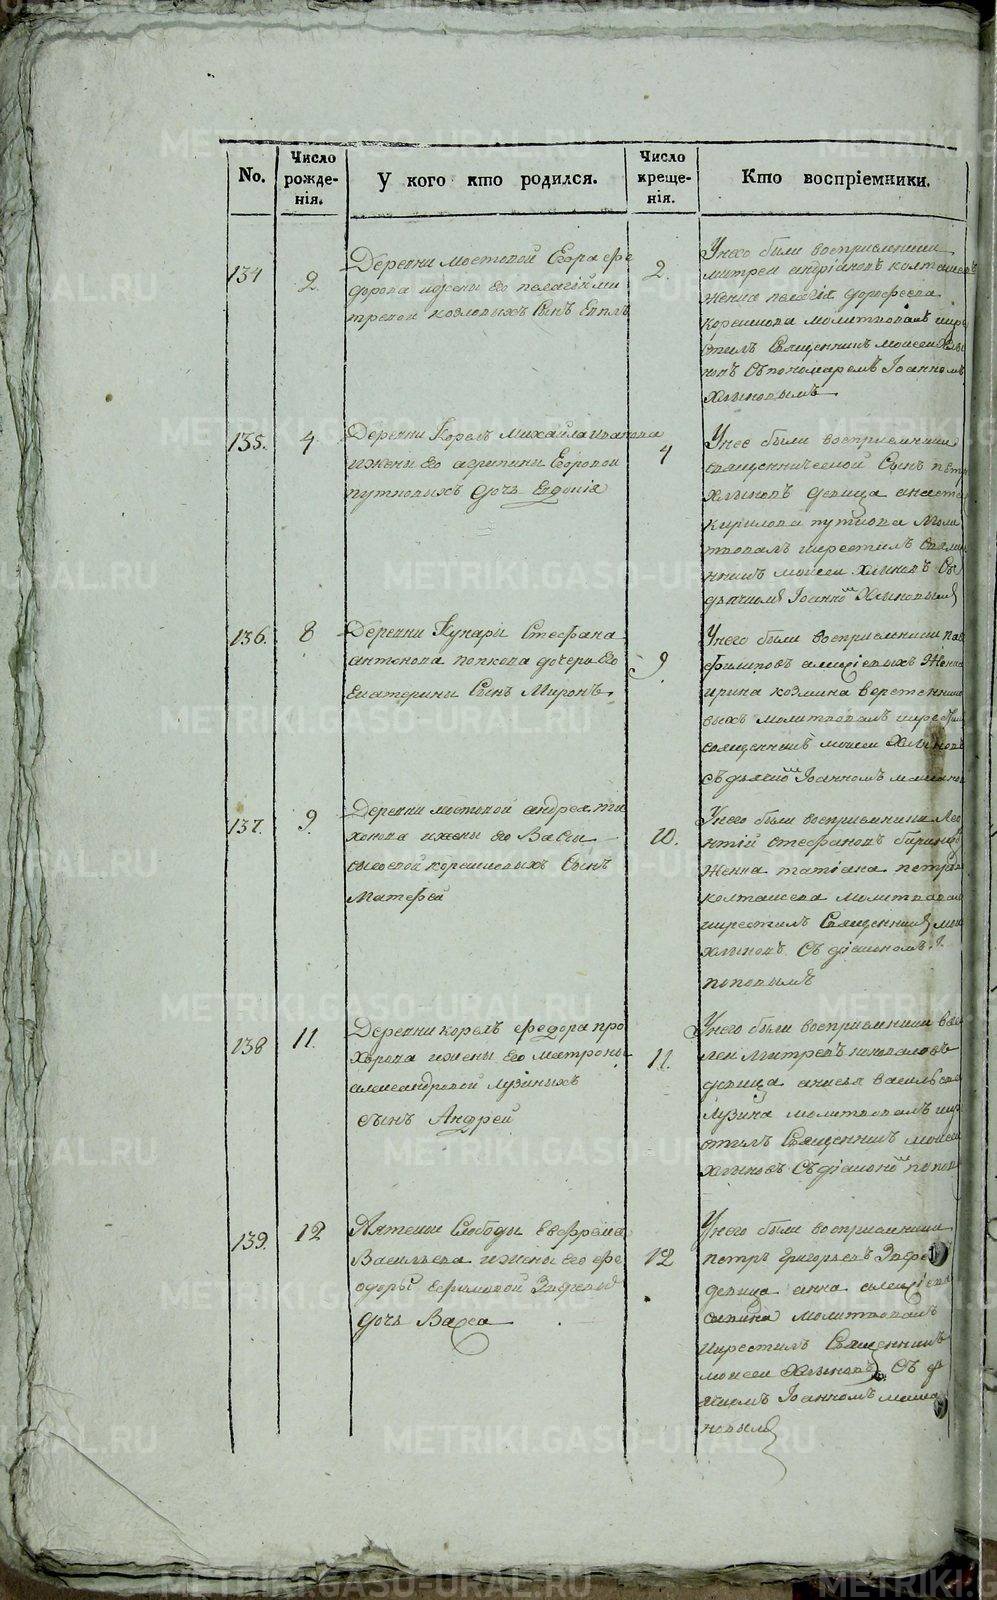 No.
Число рожде-нія.
У кого кто родился.
Число креще-нія.
Кто воспріемники.
134
2
Деревни мостовой Егора Фе
дорова ижены его пелагіи ми
тревой козловыхъ Сынъ
2.
Унего были восприемники
митреи андріановъ колташевъ
женка пелагія дорофеева
корешкова молитвовалъ икре
стилъ Священникъ моисеи Хлы
новъ Съпономаремъ Іоанномъ
Хлыновымъ
135.
4
Деревни Корелъ Михайла иванова
ижены его агрипины Егоровой
путиловыхъ дочь Евдокія
4
Унее были восприемники
священнической Сынъ петръ
Хлыновъ девица анаста
кирилова Моли
твовалъ икрестилъ Священ
никъ моисеи Хлыновъ Съ
дьячкомъ Іоанномъ Хлыновымъ
136.
8
Деревни Кунари Стефана
антонова попкова дочери его
Екатерины Сынъ Миронъ
9
Унего были восприемники пав
филиповъ алексіевыхъ Женка
ирина козмина веретенник
выхъ молитвовалъ икрестил
священникъ моисеи Хлыновъ
съ дьячкомъ Іоанномъ
137.
9.
Деревни мостовой андрея ти
хонова ижены его Васы
сысоевой корешковыхъ Сынъ
Матфеи
10.
Унего были восприемники Лео
нтій стефановъ
Женка татіана петрова
колташева молитвовал
икрестилъ Священникъ мои
Хлыновъ Съ діакономъ
поповымъ
138
11.
Деревни корелъ федора про
хорова ижены его матроны
александровой лузиныхъ
сынъ Андрей
11.
Унего были восприемники вас
леи митревъ коноваловъ
девица анисья васильева
лузина молитвовалъ икр
стилъ Священникъ моисеи
Хлыновъ Съ діакономъ попов
139.
12
Аятской Слободы Евфрема
Васильева ижены его фе
одоры ефимовой
дочь Васса
12
Унего были восприемники
петръ григорьевъ
девица анна алексіева
молитвовалъ
икрестилъ Священникъ
моисеи Хлыновъ Съ дь
ячкомъ Іоанномъ
METRIKI.GASO-URAL.RU